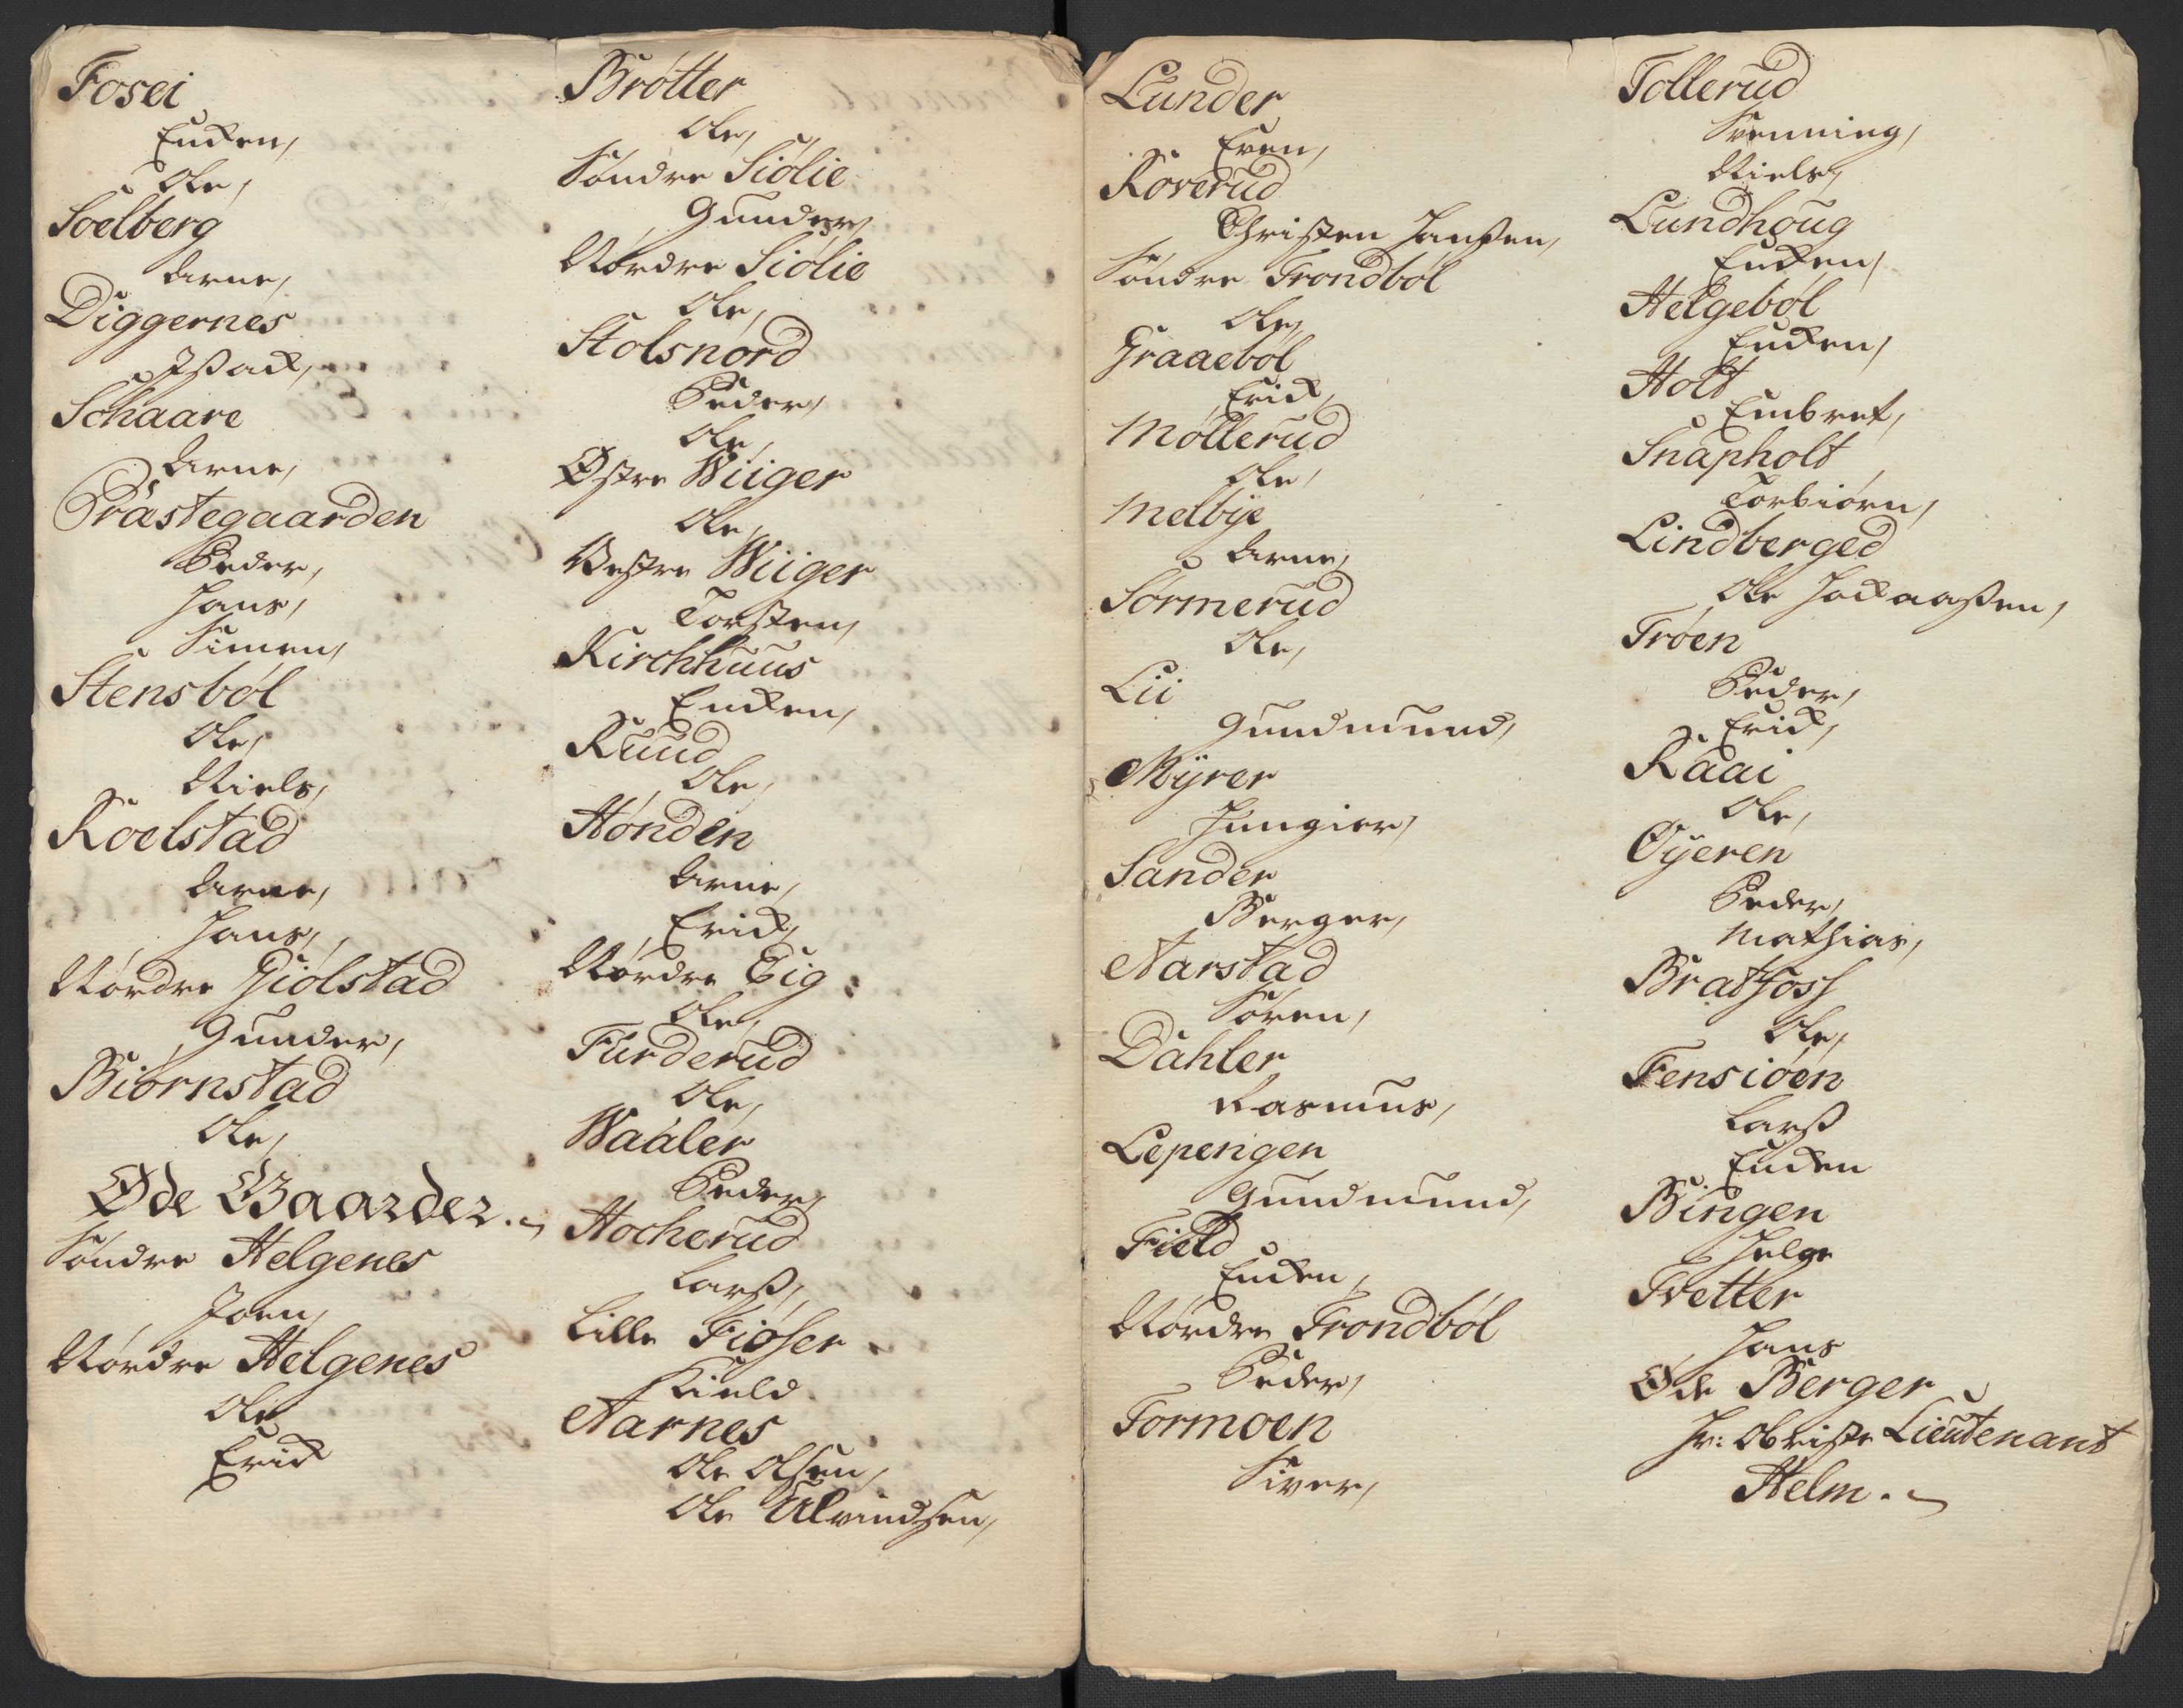 Fosei
Encken,
Ole,
Soelberg
Arne,
Diggernes
Isack,
Schaare
Arne,
Præstegaarden
Peder,
Hans,
Simen,
Stensbøl
Ole,
Niels,
Roelstad
Arne,
Hans,
Nordre Giølstad
Gunder,
Biørnstad
Ole,
Øde Gaarder.
Søndre Helgenes
Joen,
Nordre Helgenes
Ole
Erick
Brøtter
Ole,
Søndre Siølie
Gunder,
Nordre Siølie
Ole,
Stolsnord
Peder,
Ole,
Østre Wiiger
Ole,
Vestre Wiiger
Torsten,
Kirchhuus
Encken,
Ruud
Ole,
Hønden
Arne,
Erick,
Nordre Eig
Ole,
Furderud
Ole,
Waaler
Peder,
Hocherud
Larß,
Lille Fiøser
Kield
Aarnes
Ole Olsen,
Ole Alvindsen,
Lunder
Even,
Roverud
Christen Hanßen,
Søndre Trondbøl
Ole,
Graaebøl
Erick,
Møllerud
Ole,
Melbye
Arne,
Sormerud
Ole,
Lii
Gundmund,
Myrer
Hungier,
Sander
Berger,
Aarstad
Søren,
Dahler
Rasmus,
Leperigen
Gundmund,
Field
Encken,
Nordre Trondbøl
Peder,
Tormoen
Siver,
Tollerud
Svenning,
Niels,
Lundhoug
Encken,
Helgebøl
Encken,
Holt
Embret,
Snapholt
Torbiørn,
Lindberged
Ole Hockaaßen,
Trøen
Peder,
Erick,
Raaei
Ole,
Øyeren
Peder,
Mathias,
Bratfoss
Ole,
Fensiøen
Larß
Encken
Bingen
Helge
Tvetter
Hans
Øde Berger
Hr: Obriste Lieutenant
Helm.